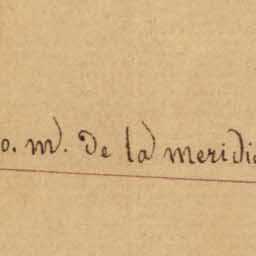 o. m. de la meridi